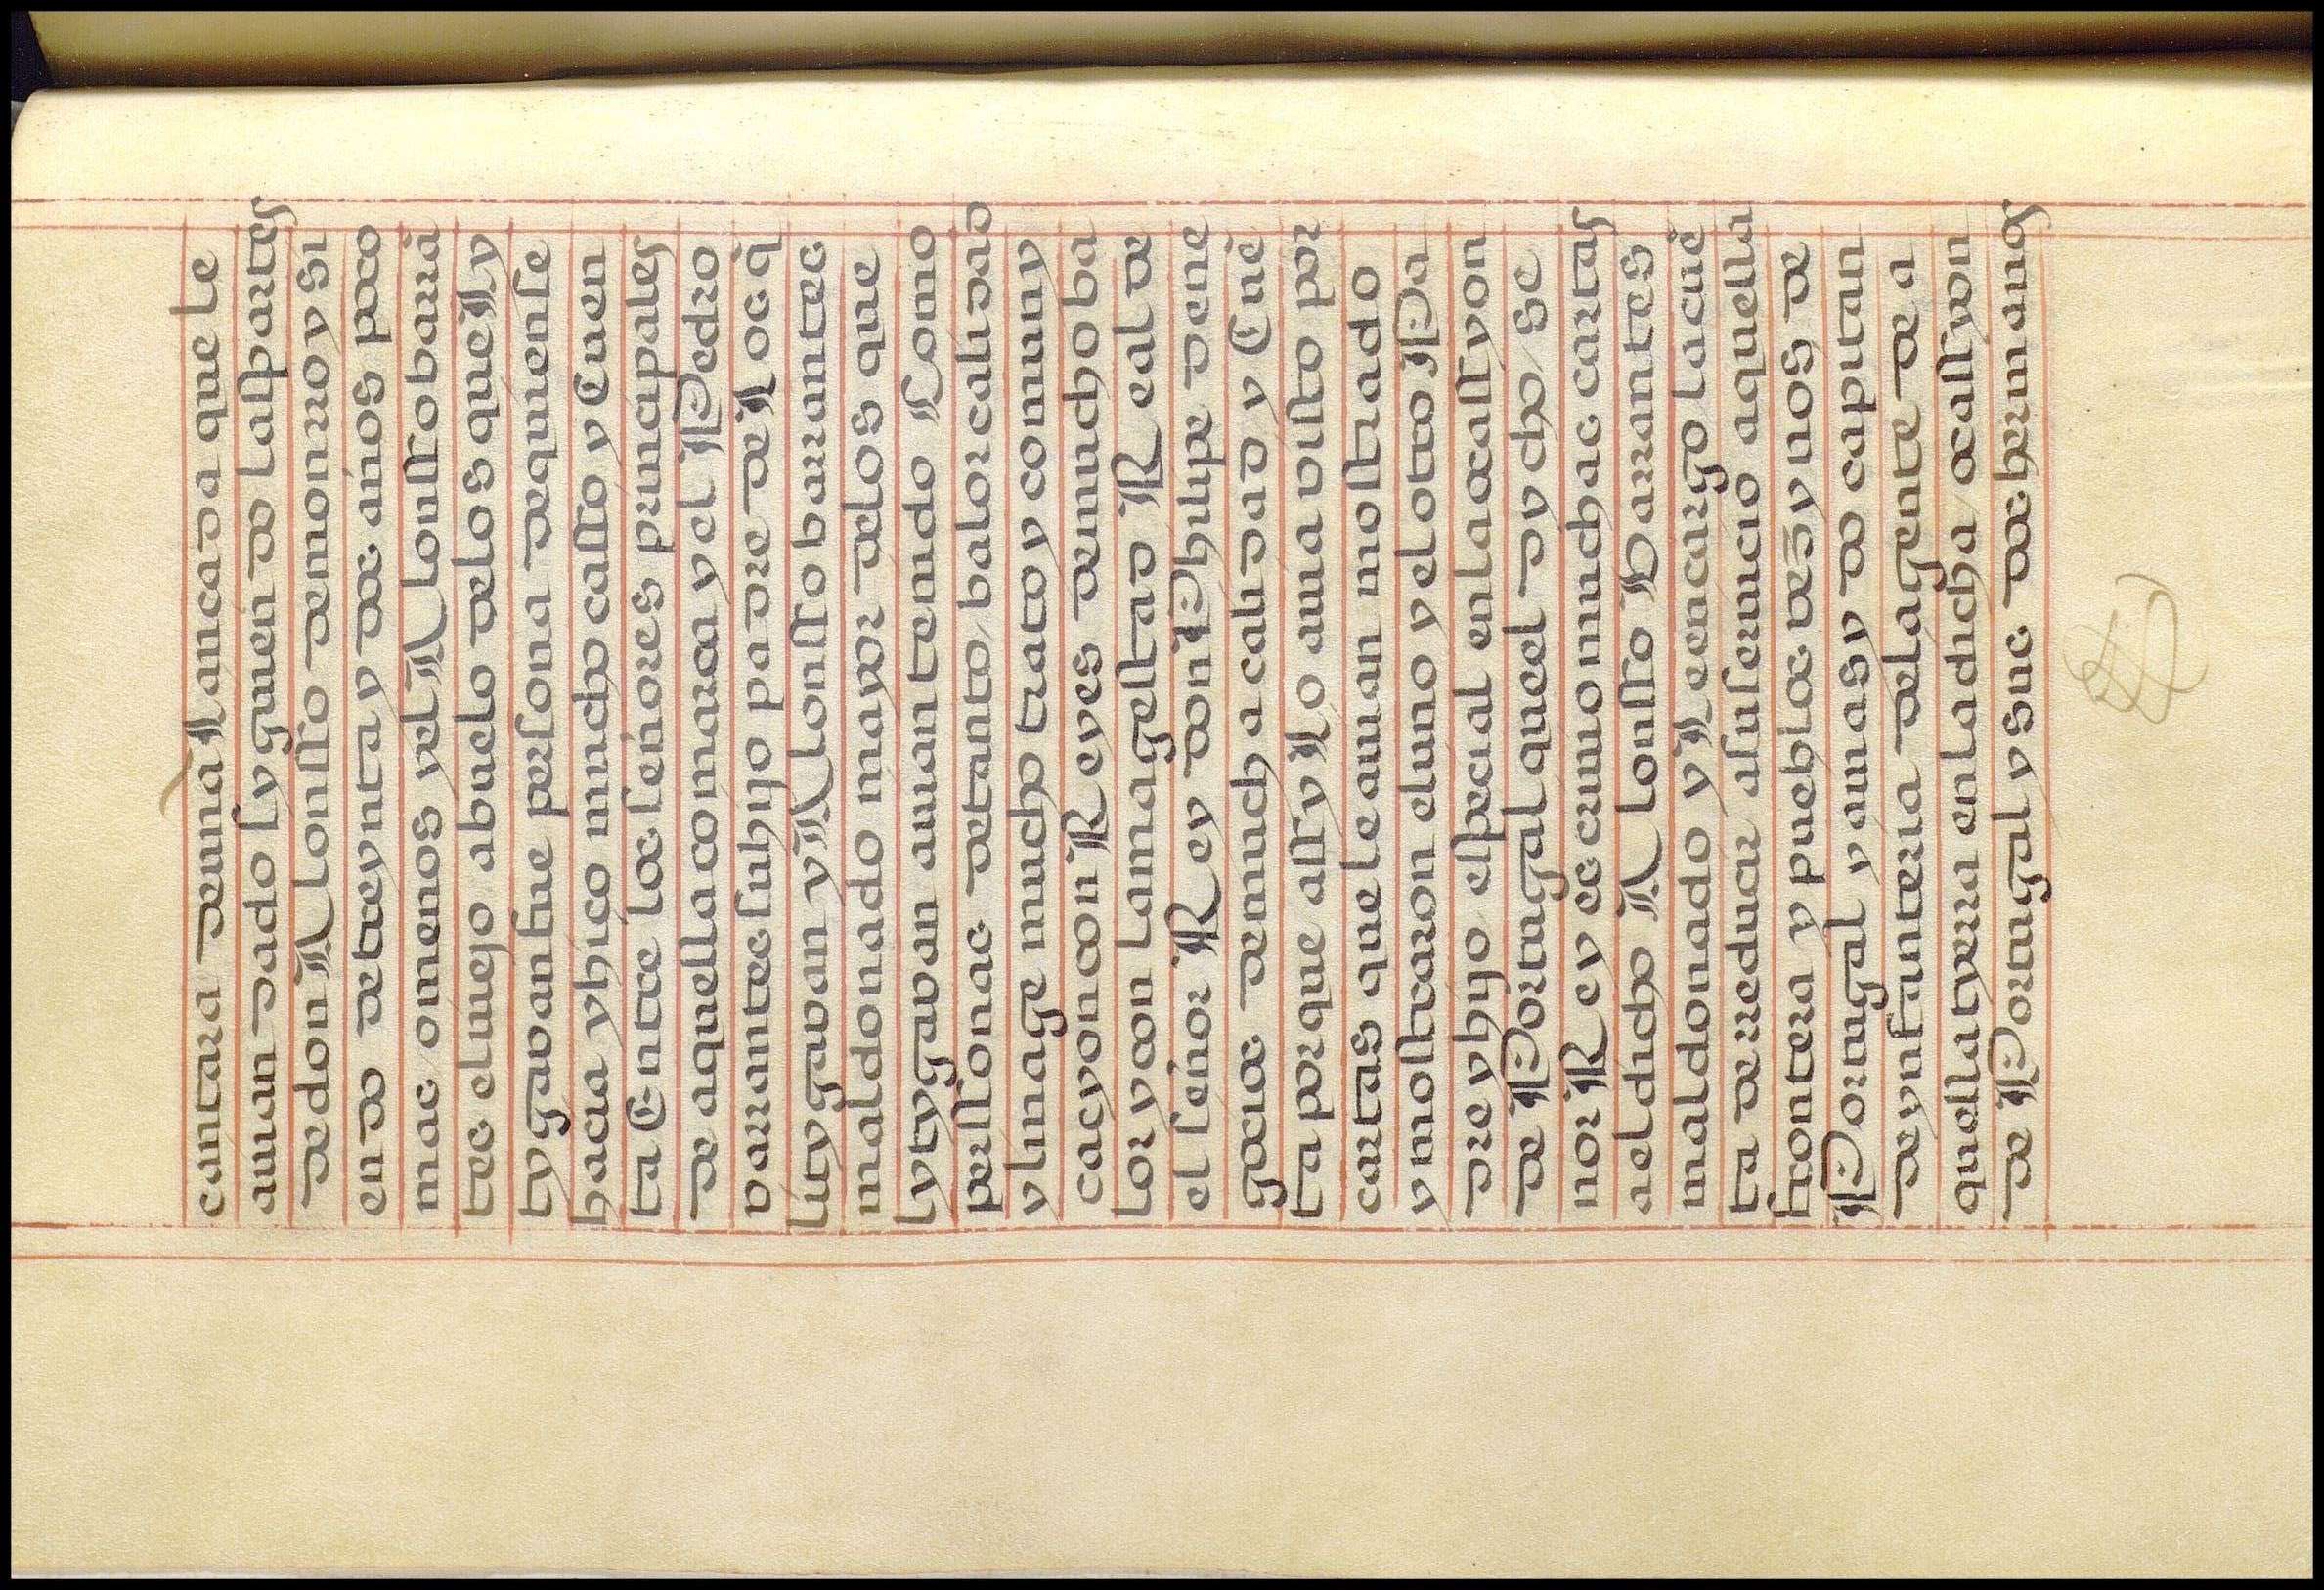 cantara de una Lancada que le
auian dado syguiendo las partes
de don Alonsso de monrroy si
endo de treynta y dos años poco
mas o menos y el Alonsso barrā
tes el uiejo abuelo de los que Ly
tygavan fue persona de quien se
hacia y hico mucho casso y Cuen
ta Entre los señores principales
de aquella comarca y el Pedro
varrantes su hijo padre de Los q̄
lity gavan y Alonsso barrantes
maldonado mayor de los que
lytygavan auian tenido Como
perssonas de tanto balor calidad
y linage mucho trato y comuny
cacyon con Reyes de mucho ba
lor y con la magestad Real de
el señor Rey don Phi lipe de ne
gocios de mucha calidad y Cuē
ta porque assy Lo auia visto por
cartas que le auian mostrado
y mostraron el uno y el otro Pa
dre y hijo especial en la ocassyon
de Portugal que el dycho se
nor Rey escriuio muchas cartas
a el dicho Alonsso Barrantes
maldonado y Le encargo la cuē
ta de rreducir a su seruicio aquella
frontera y pueblos vezynos de
Portugal y auiasydo capitan
de ynfanteria de la gente de a
quella tyerra en la dicha ocassyon
de Portugal y sus dos hermanos